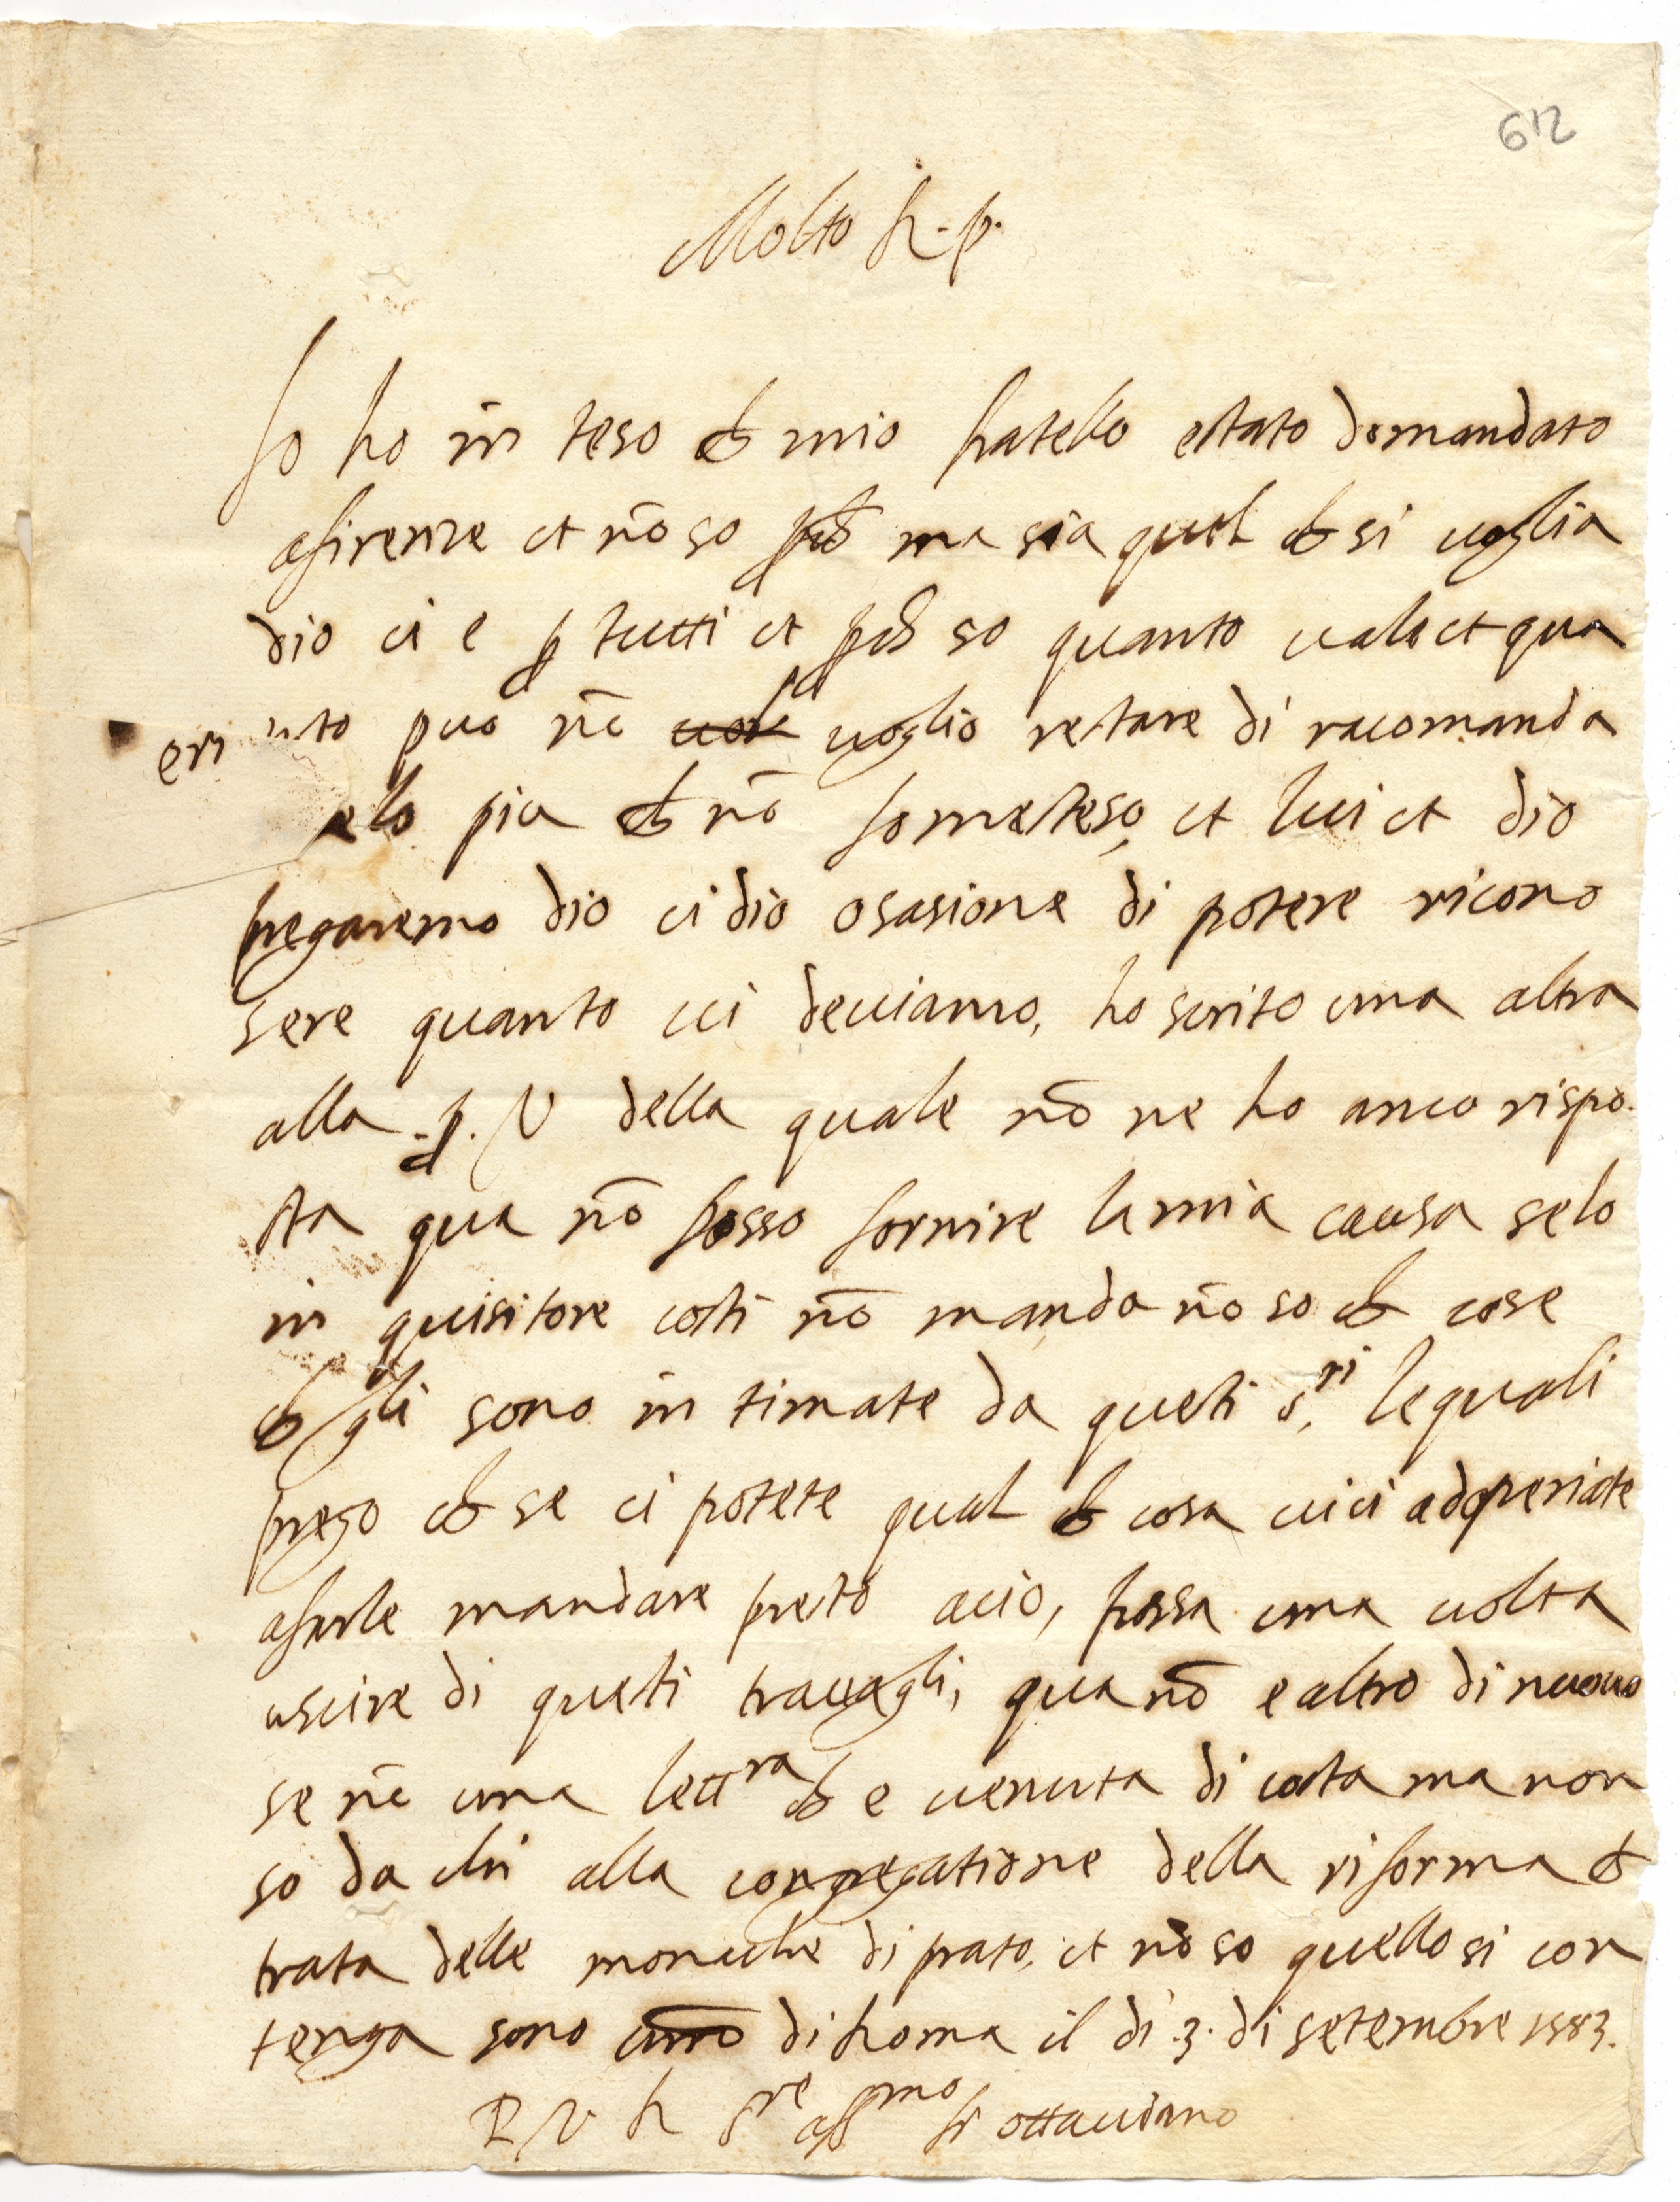 612
Molto R. p.
Io ho in teso ch mio fratello e stato domandato
a firenze et nō so pch ma sia quel ch si voglia
dio ci e p tutti et pch so quanto vale et qua
nto puo nō voglio restare di racomanda
elo pia ch nō et lui et dio
pregaremo dio ci dio osasione di potere ricono
sere quanto vi deviamo, ho scrito una altra
alla .p. V della quale nō ne ho anco rispo.
sta qua nō posso fornire la mia causa se lo
in quisitore costi nō manda nō so ch cose
ch gli sono in timate da questi s.ri le quali
prego ch se ci potete qual ch cosa vi ci adoperiate
a farle mandare presto acio, possa una volta
uscire di questi travagli, qua nō e altro di nuovo
se nō una lettra ch e venuta di costa ma non
so da chi alla congregatione della riforma ch
trata delle monache di prato, et nō so quello si con
tenga sono di Roma il di .3. di setembre 1583.
P V R fre aff.mo fr ottaviano